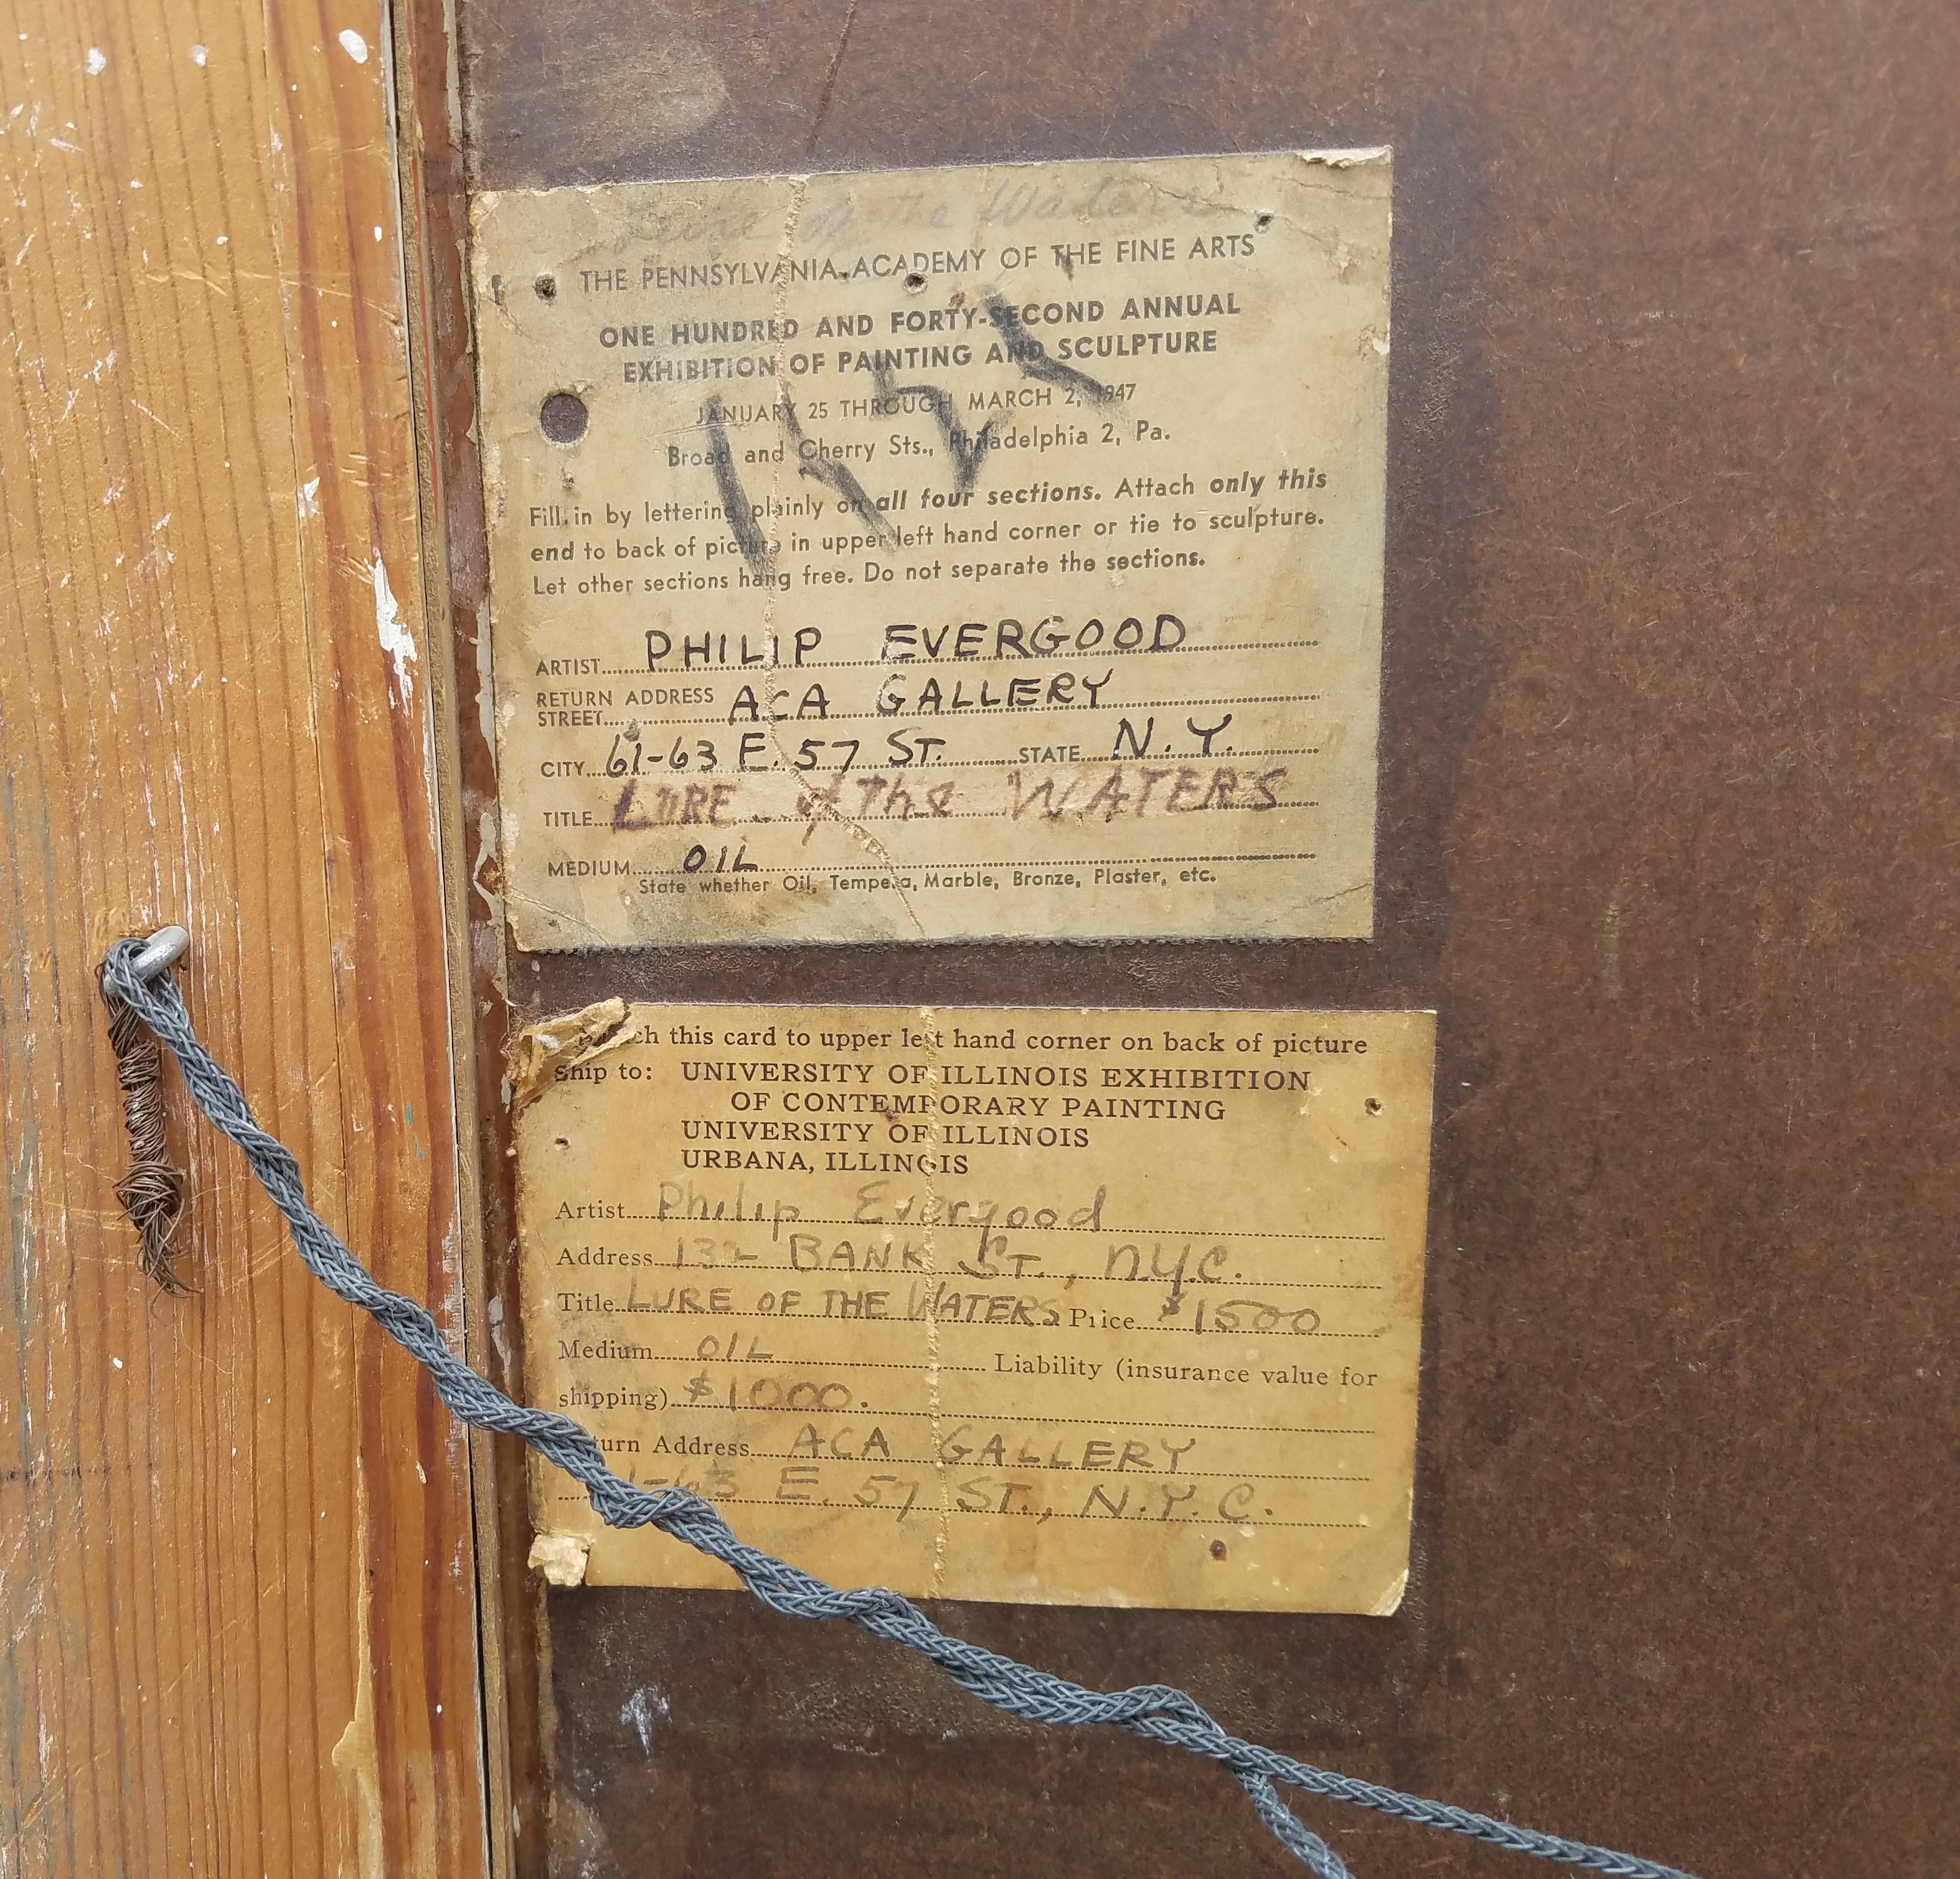 Lure of the Waters
THE PENNSYLVANIA ACADEMY OF THE FINE ARTS
ONE HUNDRED AND FORTY-SECOND ANNUAL
EXHIBITION OF PAINTING AND SCULPTURE
JANUARY 25 THROUGH MARCH 2, 1947
Broad and Cherry Sts., Philadelphia 2, Pa.
Fill in by lettering plainly on all four sections. Attach only this
end to back of picture in upper left hand corner or tie to sculpture.
Let other sections hang free. Do not separate the sections.
ARTIST PHILIP EVERGOOD
RETURN ADDRESS
STREET ACA GALLERY
CITY 61-63 E. 57 ST. STATE N.Y.
TITLE LURE of the WATERS
MEDIUM OIL
State whether Oil, Tempera, Marble, Bronze, Plaster, etc.
this card to upper left hand corner on back of picture
Ship to: UNIVERSITY OF ILLINOIS EXHIBITION
OF CONTEMPORARY PAINTING
UNIVERSITY OF ILLINOIS
URBANA, ILLINOIS
Artist Philip Evergood
Address 132 BANK ST., N.Y.C.
Title LURE OF THE WATERS Price $1500
Medium OIL Liability (insurance value for
shipping) $1000.
Return Address ACA GALLERY
63 E. 57 ST., N.Y.C.